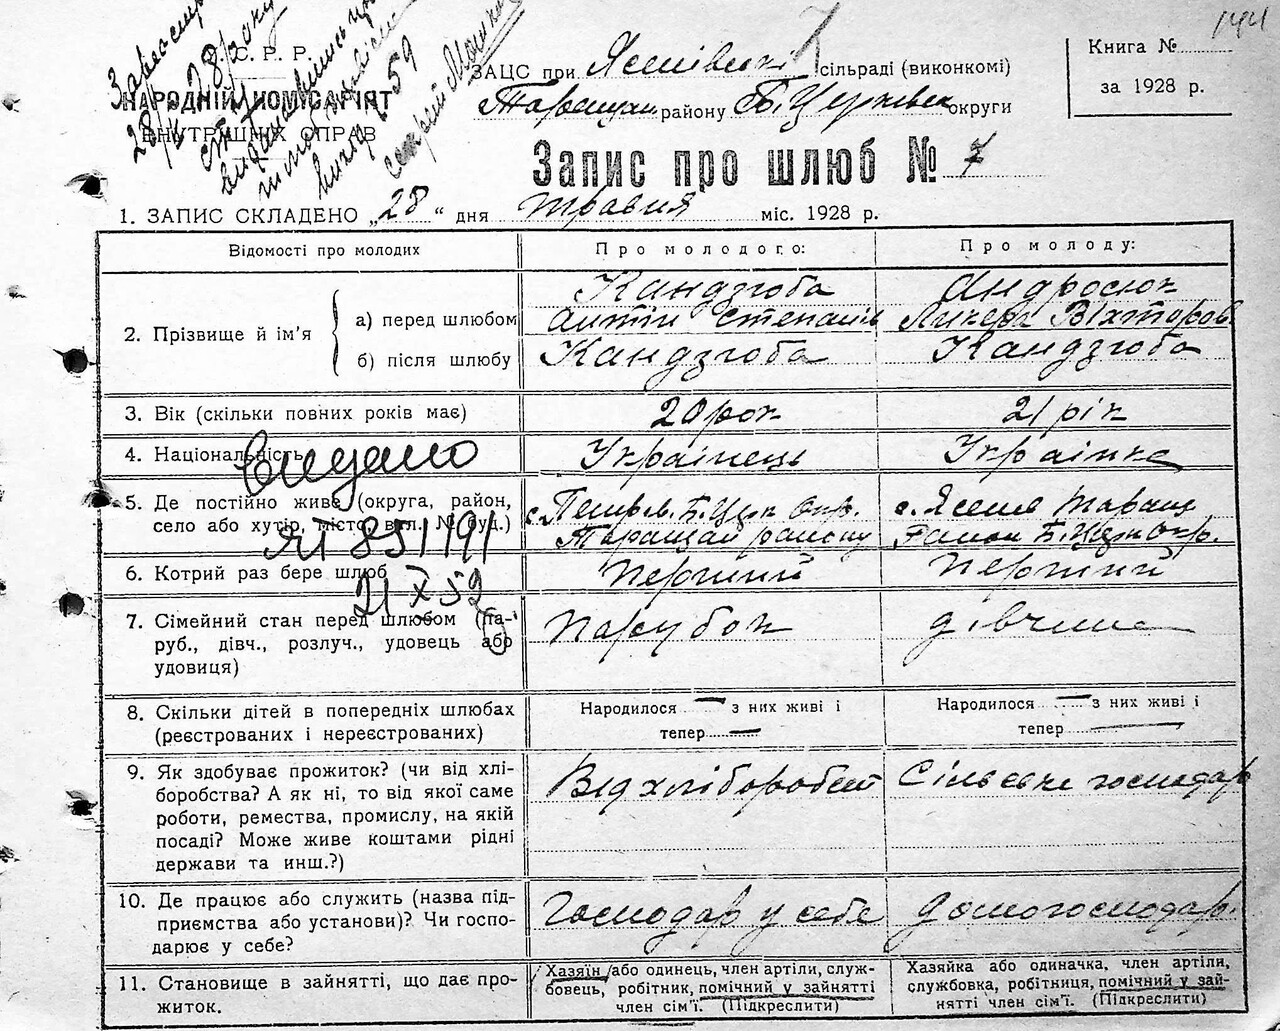 144
С. Р. Р.
НАРОДНІЙ КОМІСАРІЯТ
ВНУТРІШНІХ СПРАВ
ЗАЦС при Ясенівській сільраді (виконкомі)
Таращан району Б. Церківск округи
Книга №
за 1928 р.
Запис про шлюб № 7
1. ЗАПИС СКЛАДЕНО „28“ дня травня міс. 1928 р.
Відомості про молодих
Про молодого:
Про молоду:
2. Прізвище й ім'я
а) перед шлюбом
Кандзюба
Антін Степанів
Андросюк
Ликера Вікторов
б) після шлюбу
Кандзюба
Кандзюба
3. Вік (скільки повних років має)
20 рок
21 рік
4. Національність
Українець
Українка
видано
5. Де постійно живе (округа, район,
село або хутір, місто, вул. № буд.)
Б. Цер. Окр.
Таращан району
с. Ясенів Таращ
Район Б. Церк Окр.
ЯТ 851191
21 X 59
6. Котрий раз бере шлюб
Перший
Перший
7. Сімейний стан перед шлюбом (па-
руб., дівч., розлуч., удовець або
удовиця)
Парубок
дівчина
8. Скільки дітей в попередніх шлюбах
(реєстрованих і нереєстрованих)
Народилося — з них живі і
тепер —
Народилося — з них живі і
тепер —
9. Як здобуває прожиток? (чи від хлі-
боробства? А як ні, то від якої саме
роботи, ремества, промислу, на якій
посаді? Може живе коштами рідні
держави та инш.?)
Від хліборобст
Сільське господар
10. Де працює або служить (назва під-
приємства або установи)? Чи госпо-
дарює у себе?
Господар у себе
Домогосподар.
11. Становище в зайнятті, що дає про-
житок.
Хазяїн або одинець, член артіли, служ-
бовець, робітник, помічний у зайнятті
член сім'ї. (Підкреслити)
Хазяйка або одиначка, член артіли,
службовка, робітниця, помічний у зай-
нятті член сім'ї. (Підкреслити)